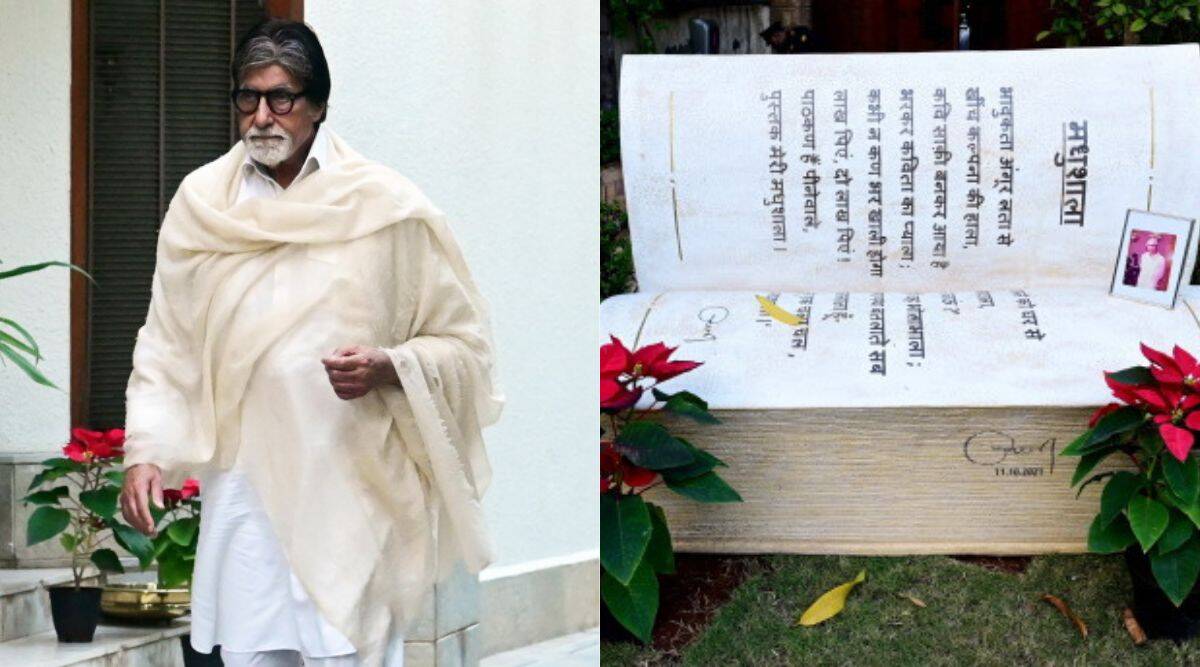 मधुशाला
भावुकता अंगूर लता से
खींच कल्पना की हाला,
कवि साक़ी बनकर आया है
भरकर कविता का प्याला;
कभी न कण भर खाली होगा
लाख पिएं, दो लाख पिएं!
पाठकगण हैं पीनेवाले,
पुस्तक मेरी मधुशाला।
को घर से
भोलाभाला;
बतलाते सब
हूँ,
चल,
11.10.2021